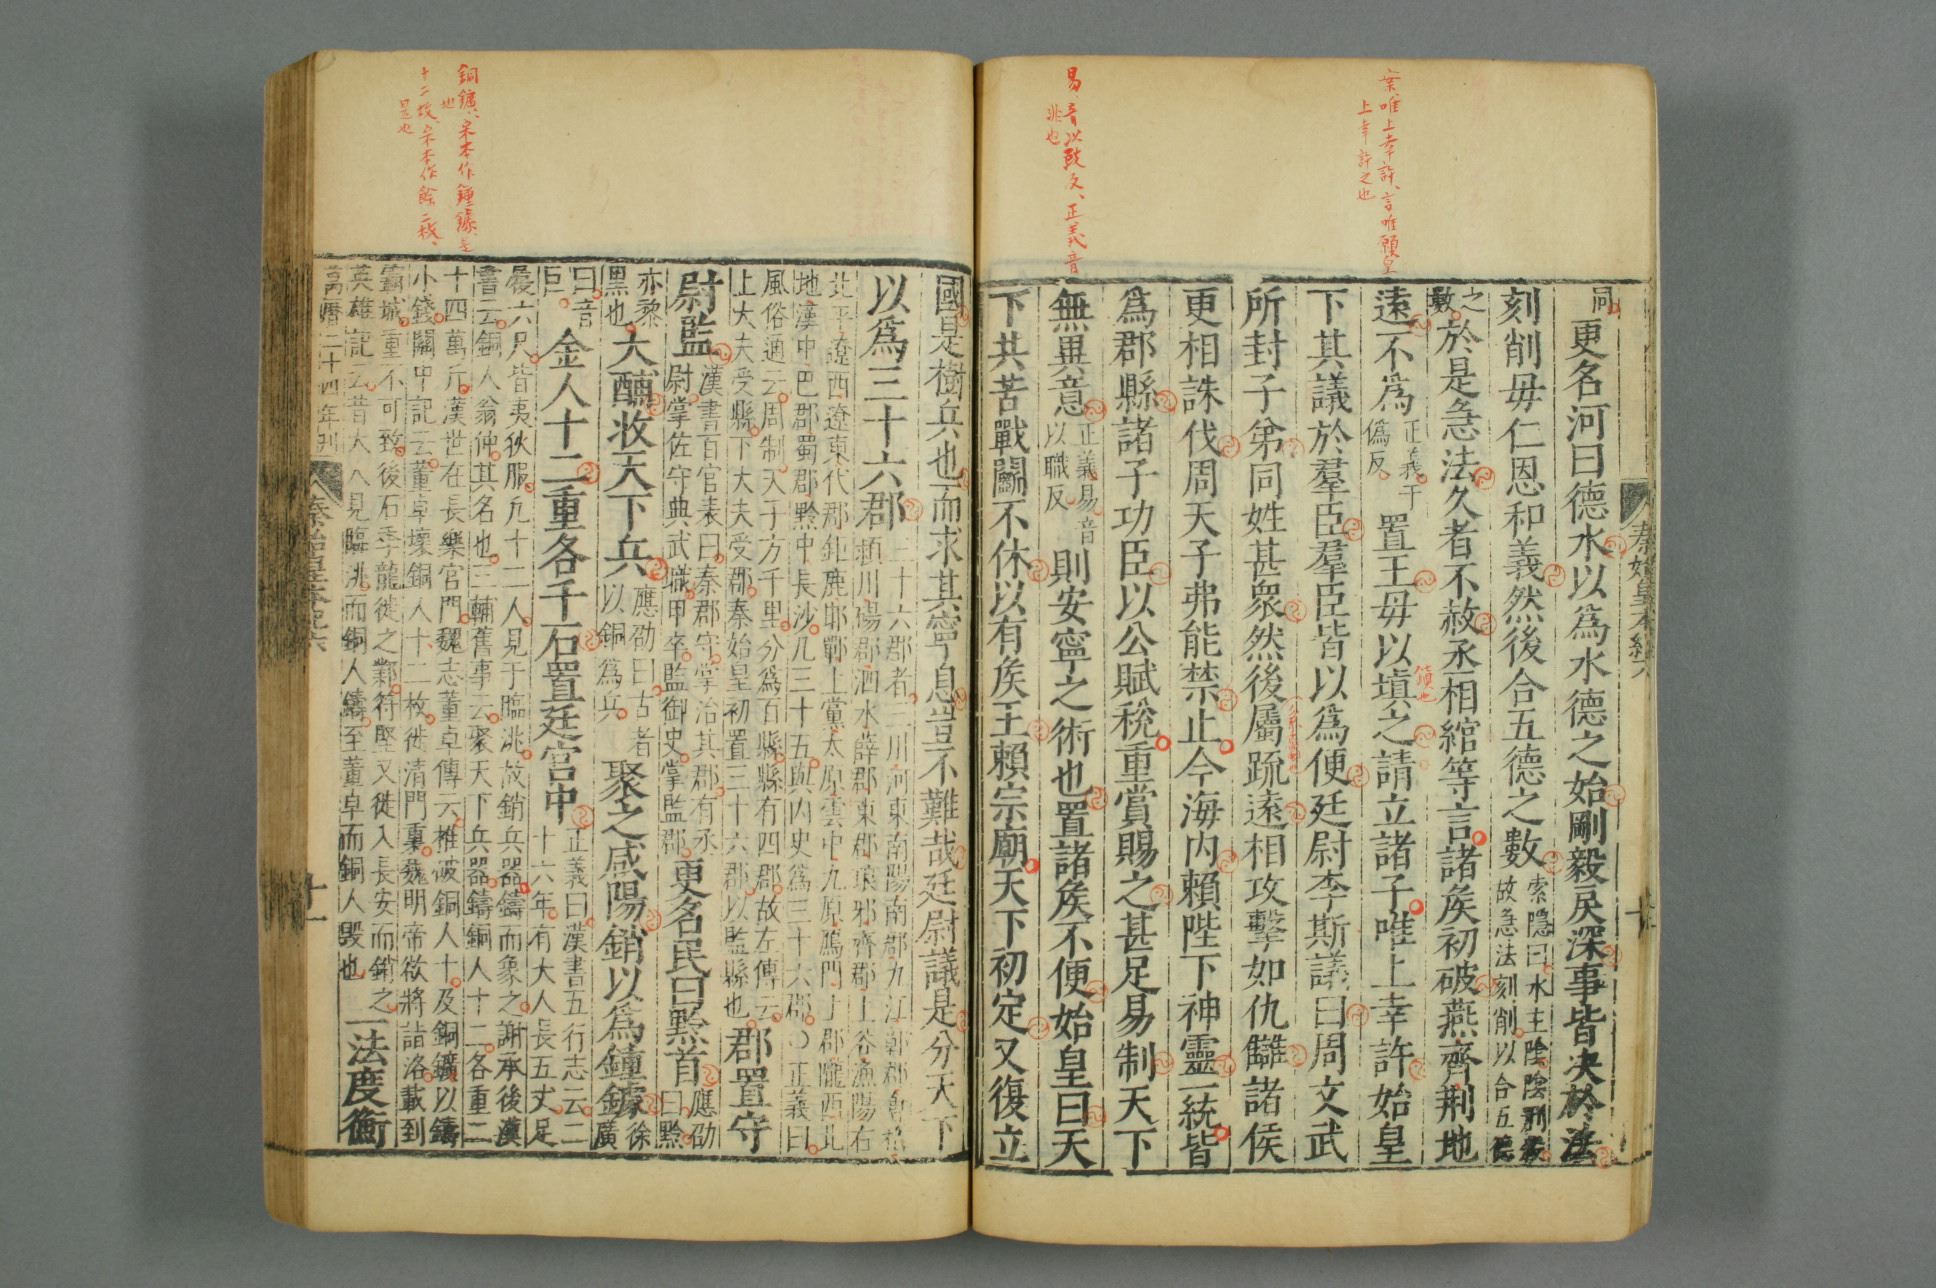 案、唯上幸許、言唯願皇
上幸許之也
易音以豉反、正義音
非也
秦始皇本紀六
同
更名河曰德水以爲水德之始剛毅戾深事皆决於法
刻削毋仁恩和義然後合五德之數
索隱曰水主陰陰刑殺
故急法刻削以合五德
之
數
於是急法久者不赦丞相綰等言諸矦初破燕齊荆地
遠不爲
正義于
僞反
置王毋以填之請立諸子唯上幸許始皇
鎮也
下其議於羣臣羣臣皆以爲便廷尉李斯議曰周文武
所封子弟同姓甚衆然後屬疏遠相攻擊如仇讎諸侯
更相誅伐周天子弗能禁止今海内賴陛下神靈一統皆
爲郡縣諸子功臣以公賦稅重賞賜之甚足易制天下
無異意
正義易音
以職反
則安寧之術也置諸矦不便始皇曰天
下共苦戰鬭不休以有矦王賴宗廟天下初定又復立
銅鑛、宋本作鍾鐻、是
也
十二枚、宋本作餘二枚、
是也
國是樹兵也而求其寧息豈不難哉廷尉議是分天下
以爲三十六郡
三十六郡者三川河東南陽南郡九江鄣郡會稽
潁川碭郡泗水薛郡東郡琅邪齊郡上谷漁陽右
北平遼西遼東代郡鉅鹿邯鄲上黨太原雲中九原鴈門上郡隴西北
地漢中巴郡蜀郡黔中長沙凡三十五與内史爲三十六郡○正義曰
風俗通云周制天子方千里分爲百縣縣有四郡故左傳云
上大夫受縣下大夫受郡秦始皇初置三十六郡以監縣也
郡置守
尉監
漢書百官表曰秦郡守掌治其郡有丞
尉掌佐守典武職甲卒監御史掌監郡
更名民曰黔首
應劭
曰黔
亦黎
黑也
大酺收天下兵
應劭曰古者
以銅爲兵
聚之咸陽銷以爲鐘鐻
徐
廣
曰音
巨
金人十二重各千石置廷宫中
正義曰漢書五行志云二
十六年有大人長五丈足
履六尺皆夷狄服凡十二人見于臨洮故銷兵器鑄而象之謝承後漢
書云銅人翁仲其名也三輔舊事云聚天下兵器鑄銅人十二各重二
十四萬斤漢世在長樂宫門魏志董卓傳云椎破銅人十及銅鑛以鑄
小錢關中記云董卓壞銅人十二枚徙清門裏魏明帝欲將詣洛載到
霸城重不可致後石季龍徙之鄴苻堅又徙入長安而銷之
英雄記云昔大人見臨洮而銅人鑄至董卓而銅人毀也
一法度衡
萬曆二十四年刊
秦始皇本紀六
十一